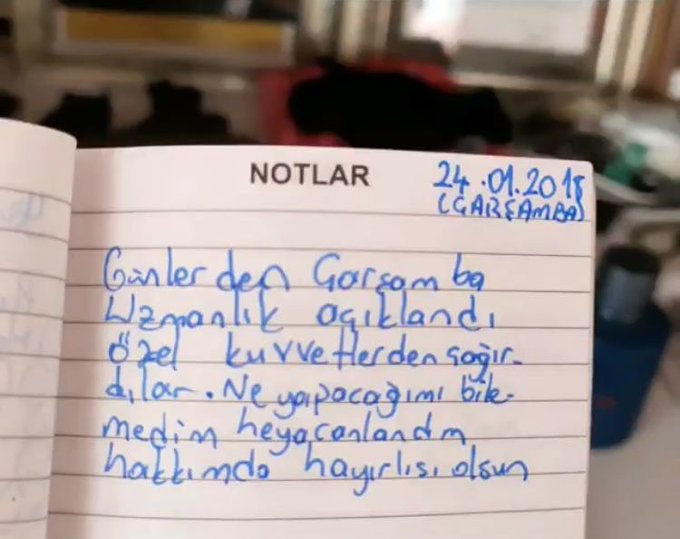 NOTLAR
24.01.2018
(ÇARŞAMBA)
Günlerden Çarşamba
Uzmanlık açıklandı
özel kuvvetlerden çağır-
dılar. Ne yapacağımı bile-
medim heyacanlandım
hakkımda hayırlısı olsun